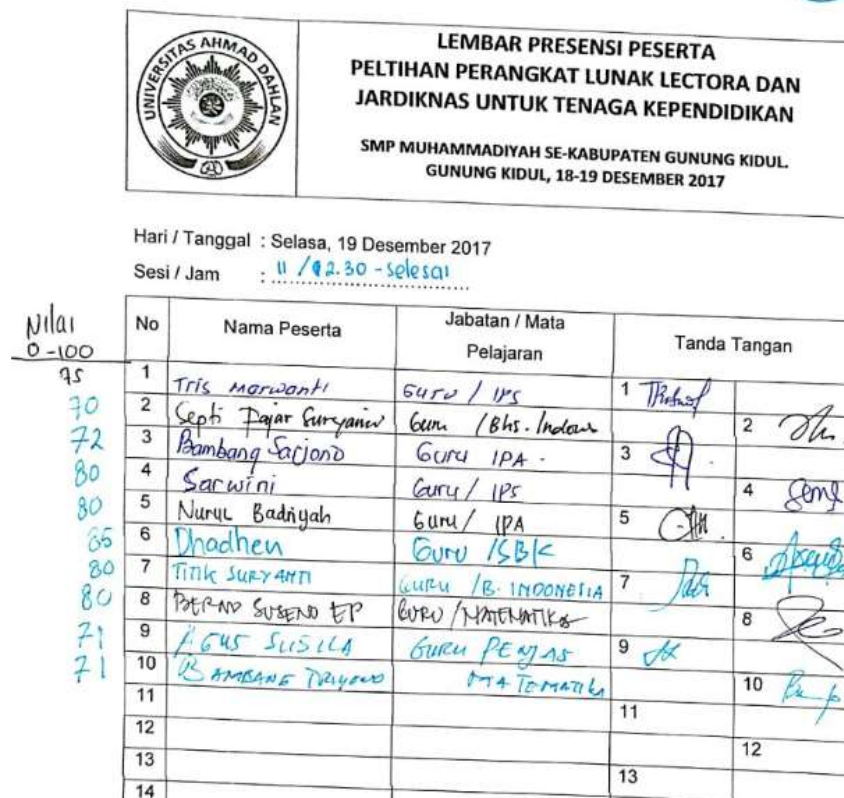 UNIVERSITAS AHMAD DAHLAN
LEMBAR PRESENSI PESERTA
PELTIHAN PERANGKAT LUNAK LECTORA DAN
JARDIKNAS UNTUK TENAGA KEPENDIDIKAN
SMP MUHAMMADIYAH SE-KABUPATEN GUNUNG KIDUL.
GUNUNG KIDUL, 18-19 DESEMBER 2017
Hari / Tanggal : Selasa, 19 Desember 2017
Sesi / Jam : 11 / 12.30 - selesai
Nilai 0-100 No Nama Peserta Jabatan / Mata Pelajaran Tanda Tangan
75 1 Tris Marwanti Guru / IPS 1
70 2 Septi Fajar Guru / Bhs. 2
72 3 Bambang Sarjono Guru IPA. 3
80 4 Sarwini Guru / IPS 4
80 5 Nurul Badriyah Guru / IPA 5
6 Dhadhen Guru / SBK 6
80 7 TITIK SURYANTI GURU / B. INDONESIA 7
80 8 SUSENO EP GURU / MATEMATIKA 8
71 9 AGUS SUSILA GURU PENJAS 9
71 10 BAMBANG MATEMATIKA 10
11 11
12 12
13 13
14